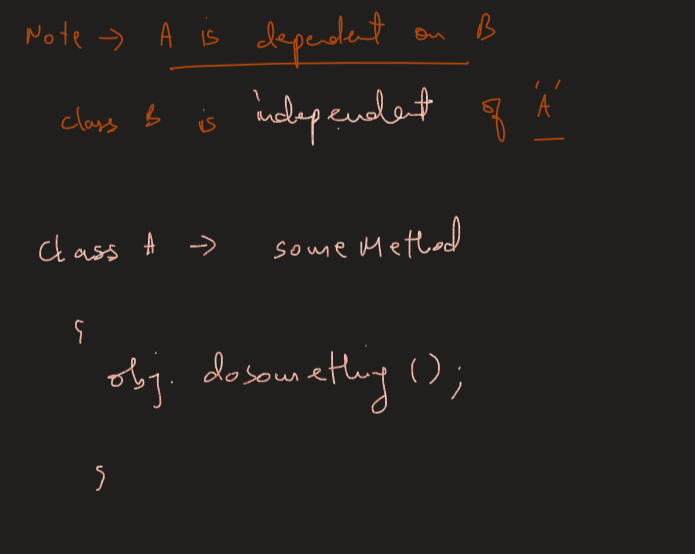 Note → A is dependent on B
class B is independent of 'A'
Class A → someMethod
{
obj. dosomething ();
}